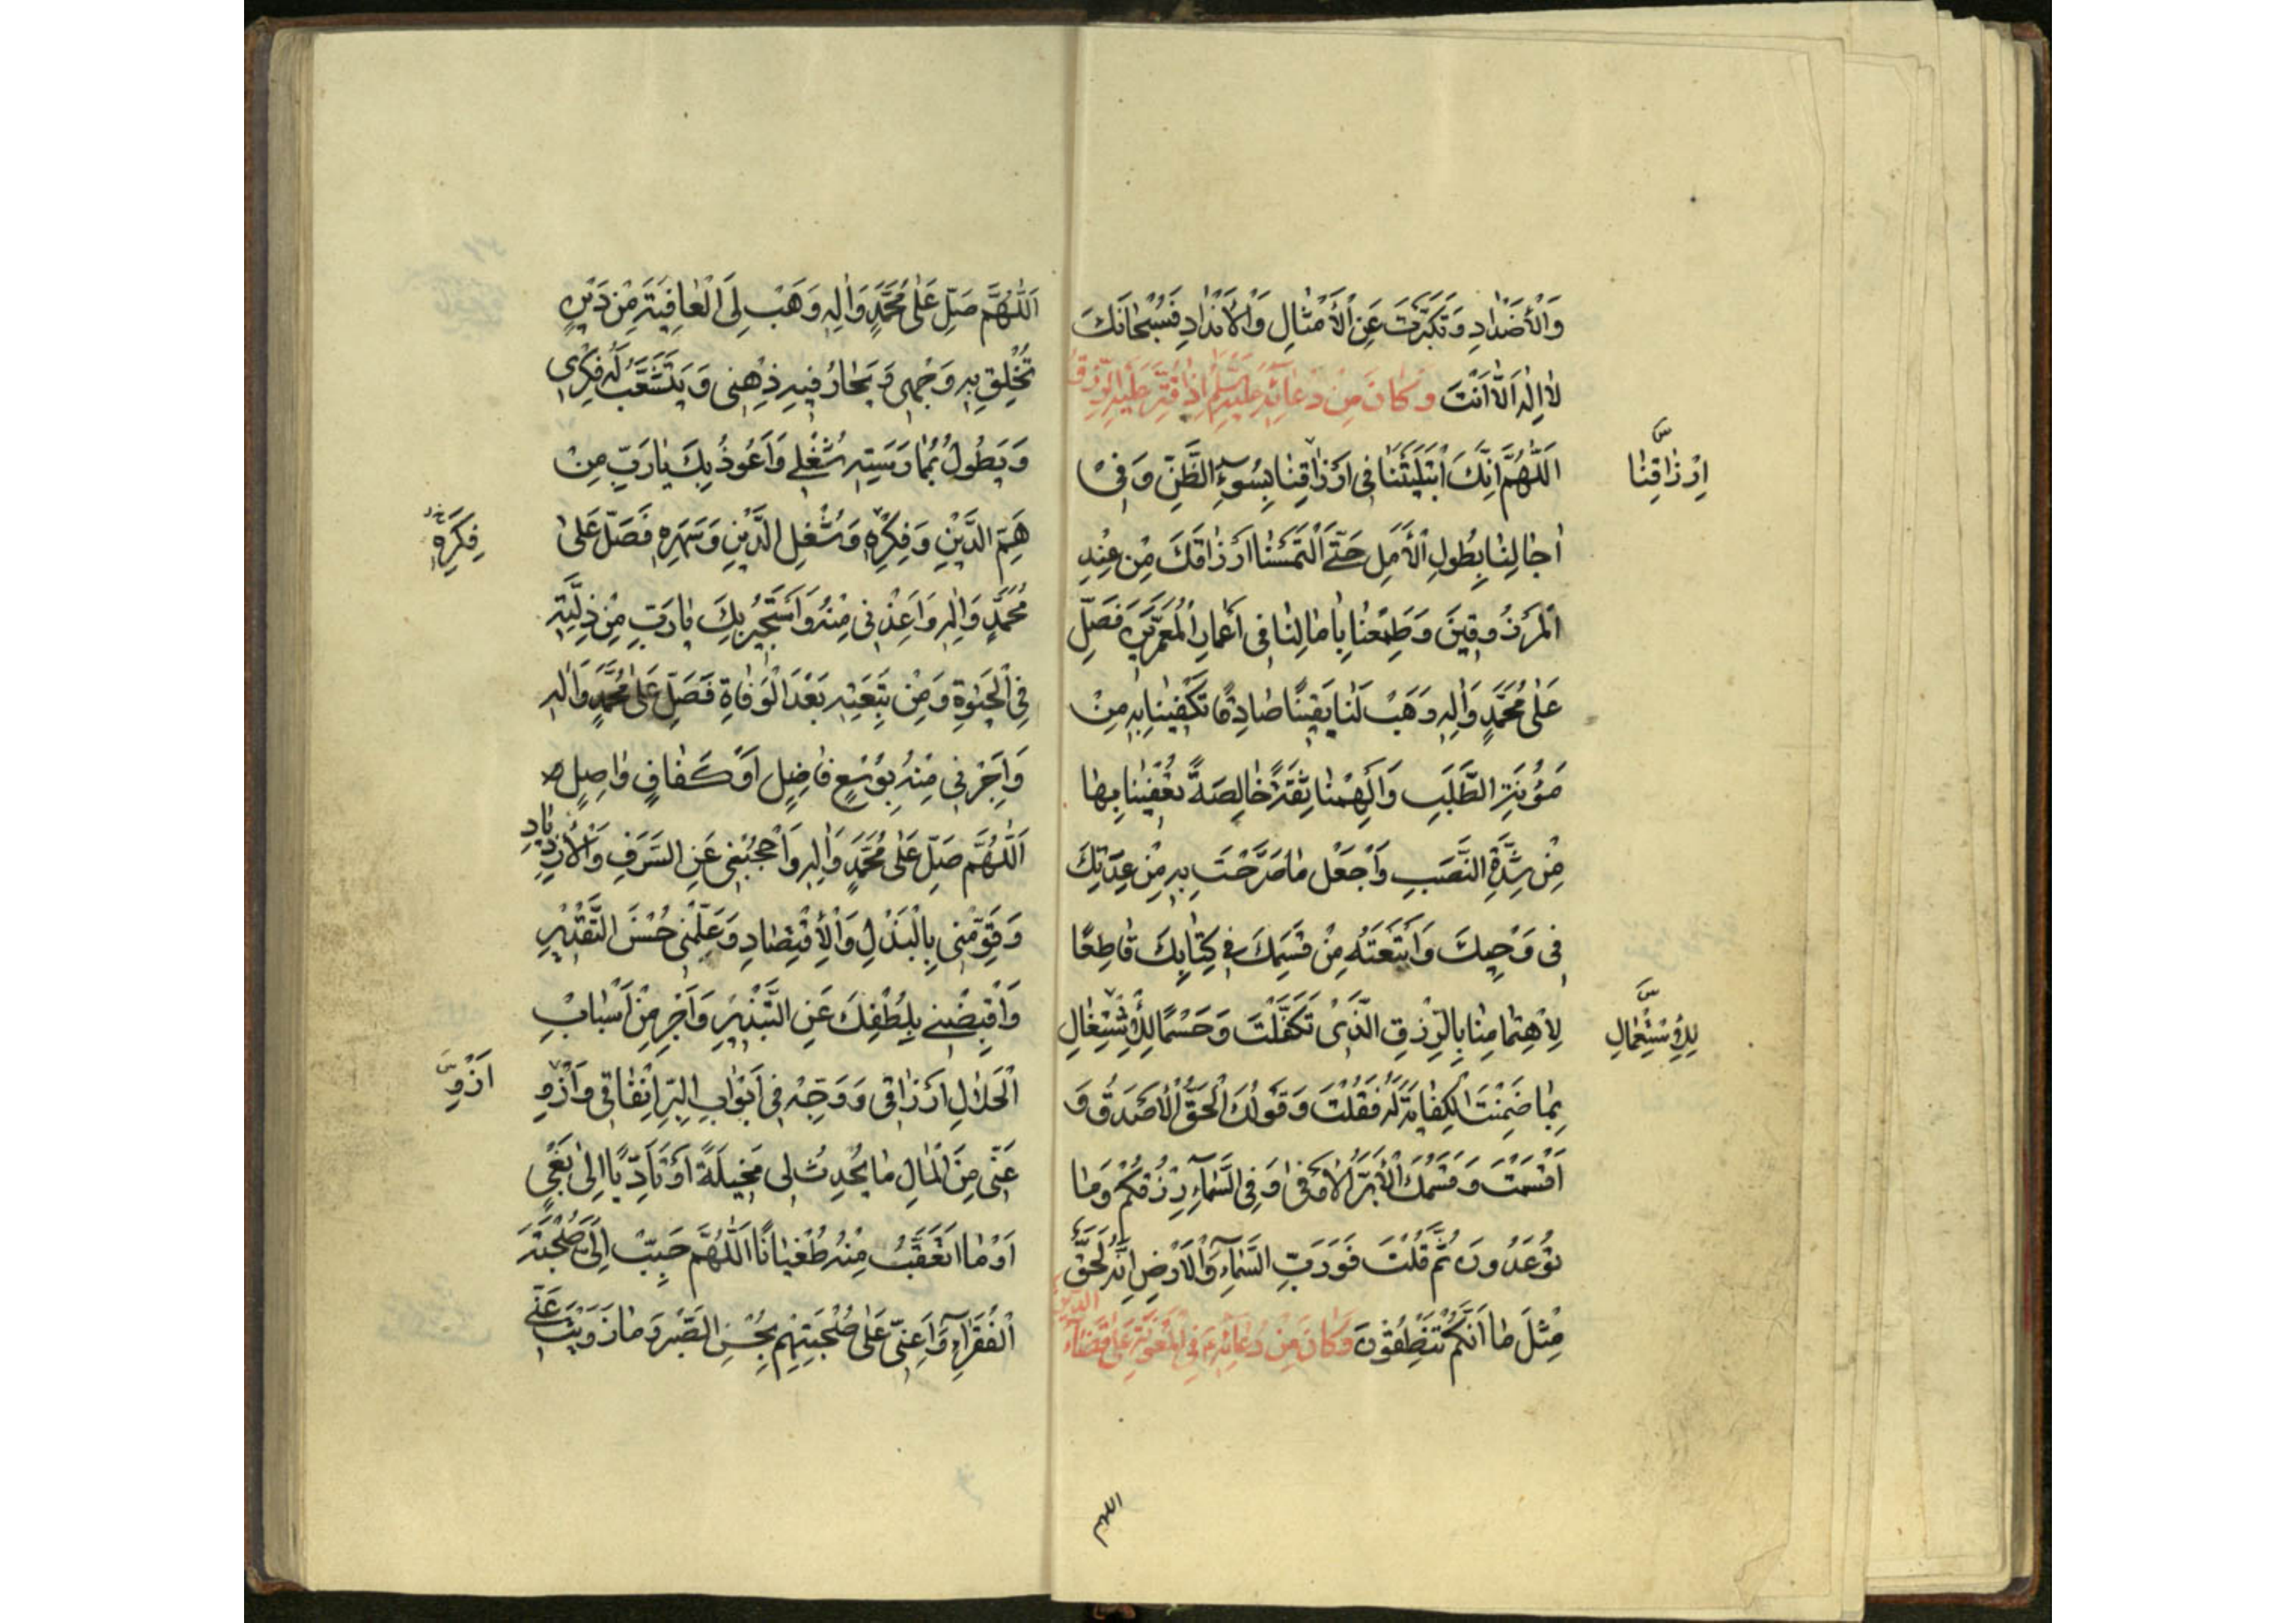 وَالْأَضْدَادِ وَتَكَبَّرْتَ عَنِ الْأَمْثَالِ وَالْأَنْدَادِ فَسُبْحَانَكَ
لَا إِلٰهَ إِلَّا أَنْتَ وَكَانَ مِنْ دُعَائِهِ عَلَيْهِ السَّلَامُ إِذَا قُتِّرَ عَلَيْهِ الرِّزْقُ
اَللّٰهُمَّ إِنَّكَ ابْتَلَيْتَنَا فِي أَرْزَاقِنَا بِسُوءِ الظَّنِّ وَفِي
اِرْزَاقِنَا
س
آجَالِنَا بِطُولِ الْأَمَلِ حَتَّى الْتَمَسْنَا أَرْزَاقَكَ مِنْ عِنْدِ
الْمَرْزُوقِينَ وَطَمِعْنَا بِآمَالِنَا فِي أَعْمَارِ الْمُعَمَّرِينَ فَصَلِّ
عَلٰى مُحَمَّدٍ وَآلِهِ وَهَبْ لَنَا يَقِينًا صَادِقًا تَكْفِينَا بِهِ مِنْ
مَؤُنَةِ الطَّلَبِ وَأَلْهِمْنَا ثِقَةً خَالِصَةً تُعْفِينَا بِهَا
مِنْ شِدَّةِ النَّصَبِ وَاجْعَلْ مَا صَرَّحْتَ بِهِ مِنْ عِدَتِكَ
فِي وَحْيِكَ وَأَتْبَعْتَهُ مِنْ قَسَمِكَ فِي كِتَابِكَ قَاطِعًا
لِاهْتِمَامِنَا بِالرِّزْقِ الَّذِي تَكَفَّلْتَ وَحَسْمًا لِلْاِشْتِغَالِ
لِلْاِسْتِعْمَالِ
س
بِمَا ضَمِنْتَ الْكِفَايَةَ لَهُ فَقُلْتَ وَقَوْلُكَ الْحَقُّ الْأَصْدَقُ وَ
أَقْسَمْتَ وَقَسَمُكَ الْأَبَرُّ الْأَوْفٰى وَفِي السَّمَاءِ رِزْقُكُمْ وَمَا
تُوعَدُونَ ثُمَّ قُلْتَ فَوَرَبِّ السَّمَاءِ وَالْأَرْضِ إِنَّهُ لَحَقٌّ
مِثْلَ مَا أَنَّكُمْ تَنْطِقُونَ وَكَانَ مِنْ دُعَائِهِ ع فِي الْمَعُونَةِ عَلٰى قَضَاءِ الدَّيْنِ
اللهم
اَللّٰهُمَّ صَلِّ عَلٰى مُحَمَّدٍ وَآلِهِ وَهَبْ لِيَ الْعَافِيَةَ مِنْ دَيْنٍ
تُخْلِقُ بِهِ وَجْهِي وَيَحَارُ فِيهِ ذِهْنِي وَيَتَشَعَّبُ لَهُ فِكْرِي
وَيَطُولُ بِمُمَارَسَتِهِ شُغْلِي وَأَعُوذُ بِكَ يَا رَبِّ مِنْ
هَمِّ الدَّيْنِ وَفِكْرِهِ وَشُغْلِ الدَّيْنِ وَسَهَرِهِ فَصَلِّ عَلٰى
فِكَرِهِ
خ
مُحَمَّدٍ وَآلِهِ وَأَعِذْنِي مِنْهُ وَأَسْتَجِيرُ بِكَ يَا رَبِّ مِنْ ذِلَّتِهِ
فِي الْحَيٰوةِ وَمِنْ تَبِعَتِهِ بَعْدَ الْوَفَاةِ فَصَلِّ عَلٰى مُحَمَّدٍ وَآلِهِ
وَأَجِرْنِي مِنْهُ بِوُسْعٍ فَاضِلٍ أَوْ كَفَافٍ وَاصِلٍ
اَللّٰهُمَّ صَلِّ عَلٰى مُحَمَّدٍ وَآلِهِ وَاحْجُبْنِي عَنِ السَّرَفِ وَالْاِزْدِيَادِ
وَقَوِّمْنِي بِالْبَذْلِ وَالْاِقْتِصَادِ وَعَلِّمْنِي حُسْنَ التَّقْدِيرِ
وَاقْبِضْنِي بِلُطْفِكَ عَنِ التَّبْذِيرِ وَأَجْرِ مِنْ أَسْبَابِ
الْحَلَالِ أَرْزَاقِي وَوَجِّهْ فِي أَبْوَابِ الْبِرِّ إِنْفَاقِي وَازْوِ
اَزْوِ
س
عَنِّي مِنَ الْمَالِ مَا يُحْدِثُ لِي مَخِيلَةً أَوْ تَأَدِّيًا إِلٰى بَغْيٍ
أَوْ مَا أَتَعَقَّبُ مِنْهُ طُغْيَانًا اَللّٰهُمَّ حَبِّبْ إِلَيَّ صُحْبَةَ
الْفُقَرَاءِ وَأَعِنِّي عَلٰى صُحْبَتِهِمْ بِحُسْنِ الصَّبْرِ وَمَا زَوَيْتَ عَنِّي